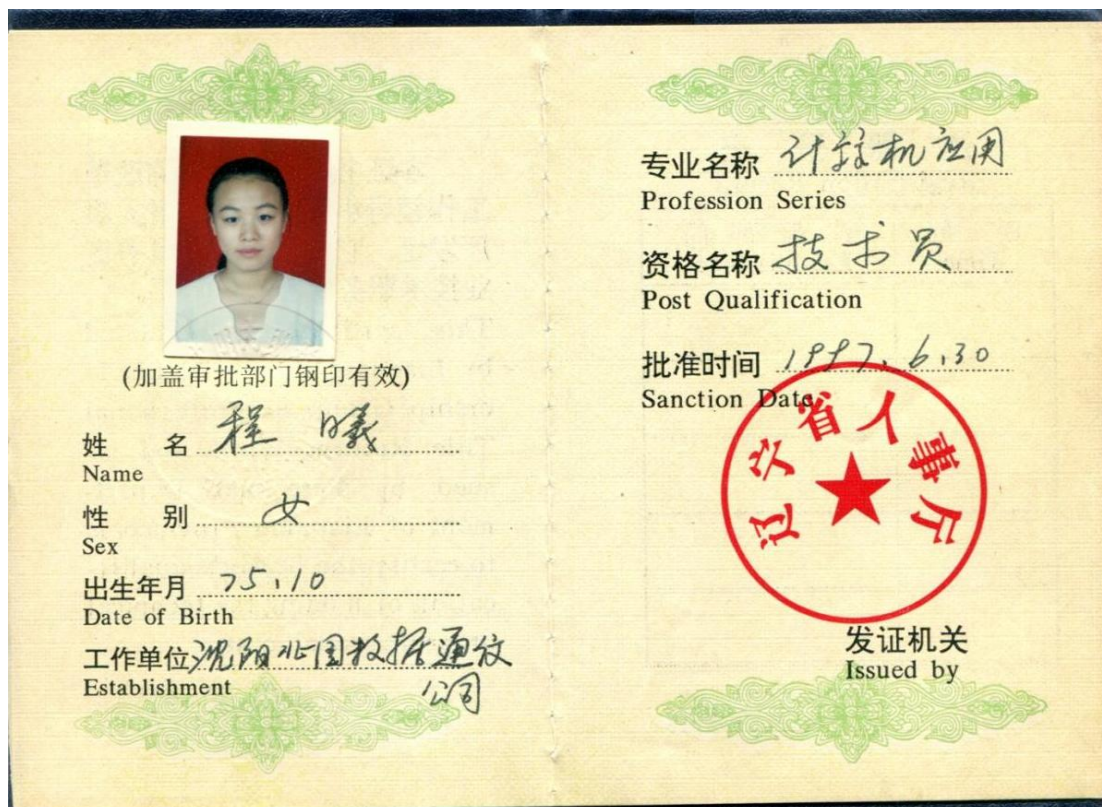 (加盖审批部门钢印有效)
姓 名 程 曦
Name
性 别 女
Sex
出生年月 75.10
Date of Birth
工作单位 沈阳北国数据通信
Establishment 公司
专业名称 计算机应用
Profession Series
资格名称 技术员
Post Qualification
批准时间 1997.6.30
Sanction Date
辽宁省人事厅
发证机关
Issued by